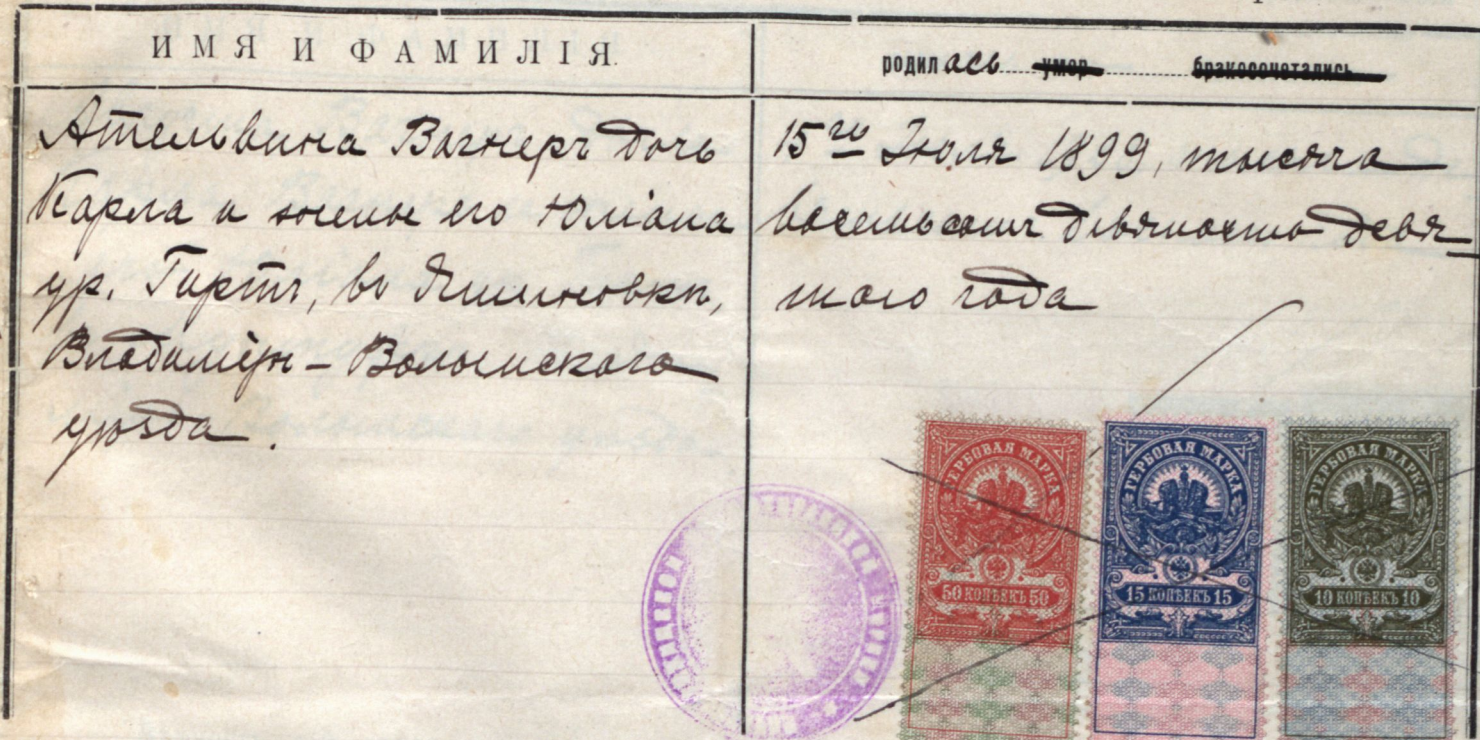 ИМЯ И ФАМИЛІЯ.
родилась умер бракосочетались
Ательвина Вагнеръ дочь
Карла и жены его Юліана
ур. Гиртъ, въ Яшиновкѣ,
Владимір - Волынскаго
уѣзда.
15го Іюля 1899, тысяча
восемьсотъ девяносто девя-
таго года
ГЕРБОВАЯ МАРКА
50 КОПѢЕКЪ 50
ГЕРБОВАЯ МАРКА
15 КОПѢЕКЪ 15
ГЕРБОВАЯ МАРКА
10 КОПѢЕКЪ 10